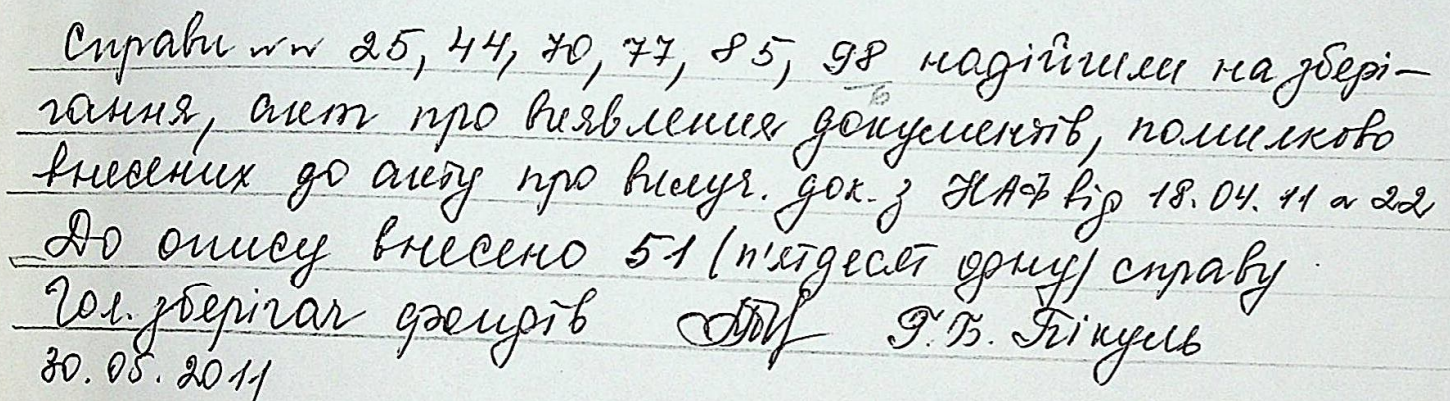 Справи №№ 25, 44, 70, 77, 85, 98 надійшли на збері-
гання, акт про виявлення документів, помилково
внесених до акту про вилуч. док. з НАФ від 18.04.11 № 22
До опису внесено 51 (п'ятдесят одну) справу
Гол. зберігач фондів Г.Б. Пікуль
30.05.2011